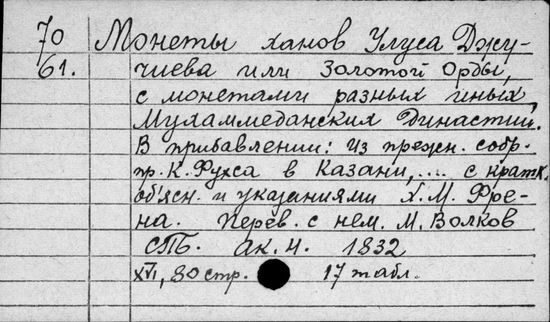 70 Монеты ханов Улуса Джу-
61. чиева или Золотой Орды,
с монетами разных иных
Мухаммеданских Династий.
В прибавлении: Из прежн. собр.
пр. К. Фукса в Казани,.... с кратк.
об'ясн. и указаниями Х. М. Фре-
на. Перев. с нем. М. Волков
СПб. ак. н. 1832
XVI, 80 стр. 17 табл.